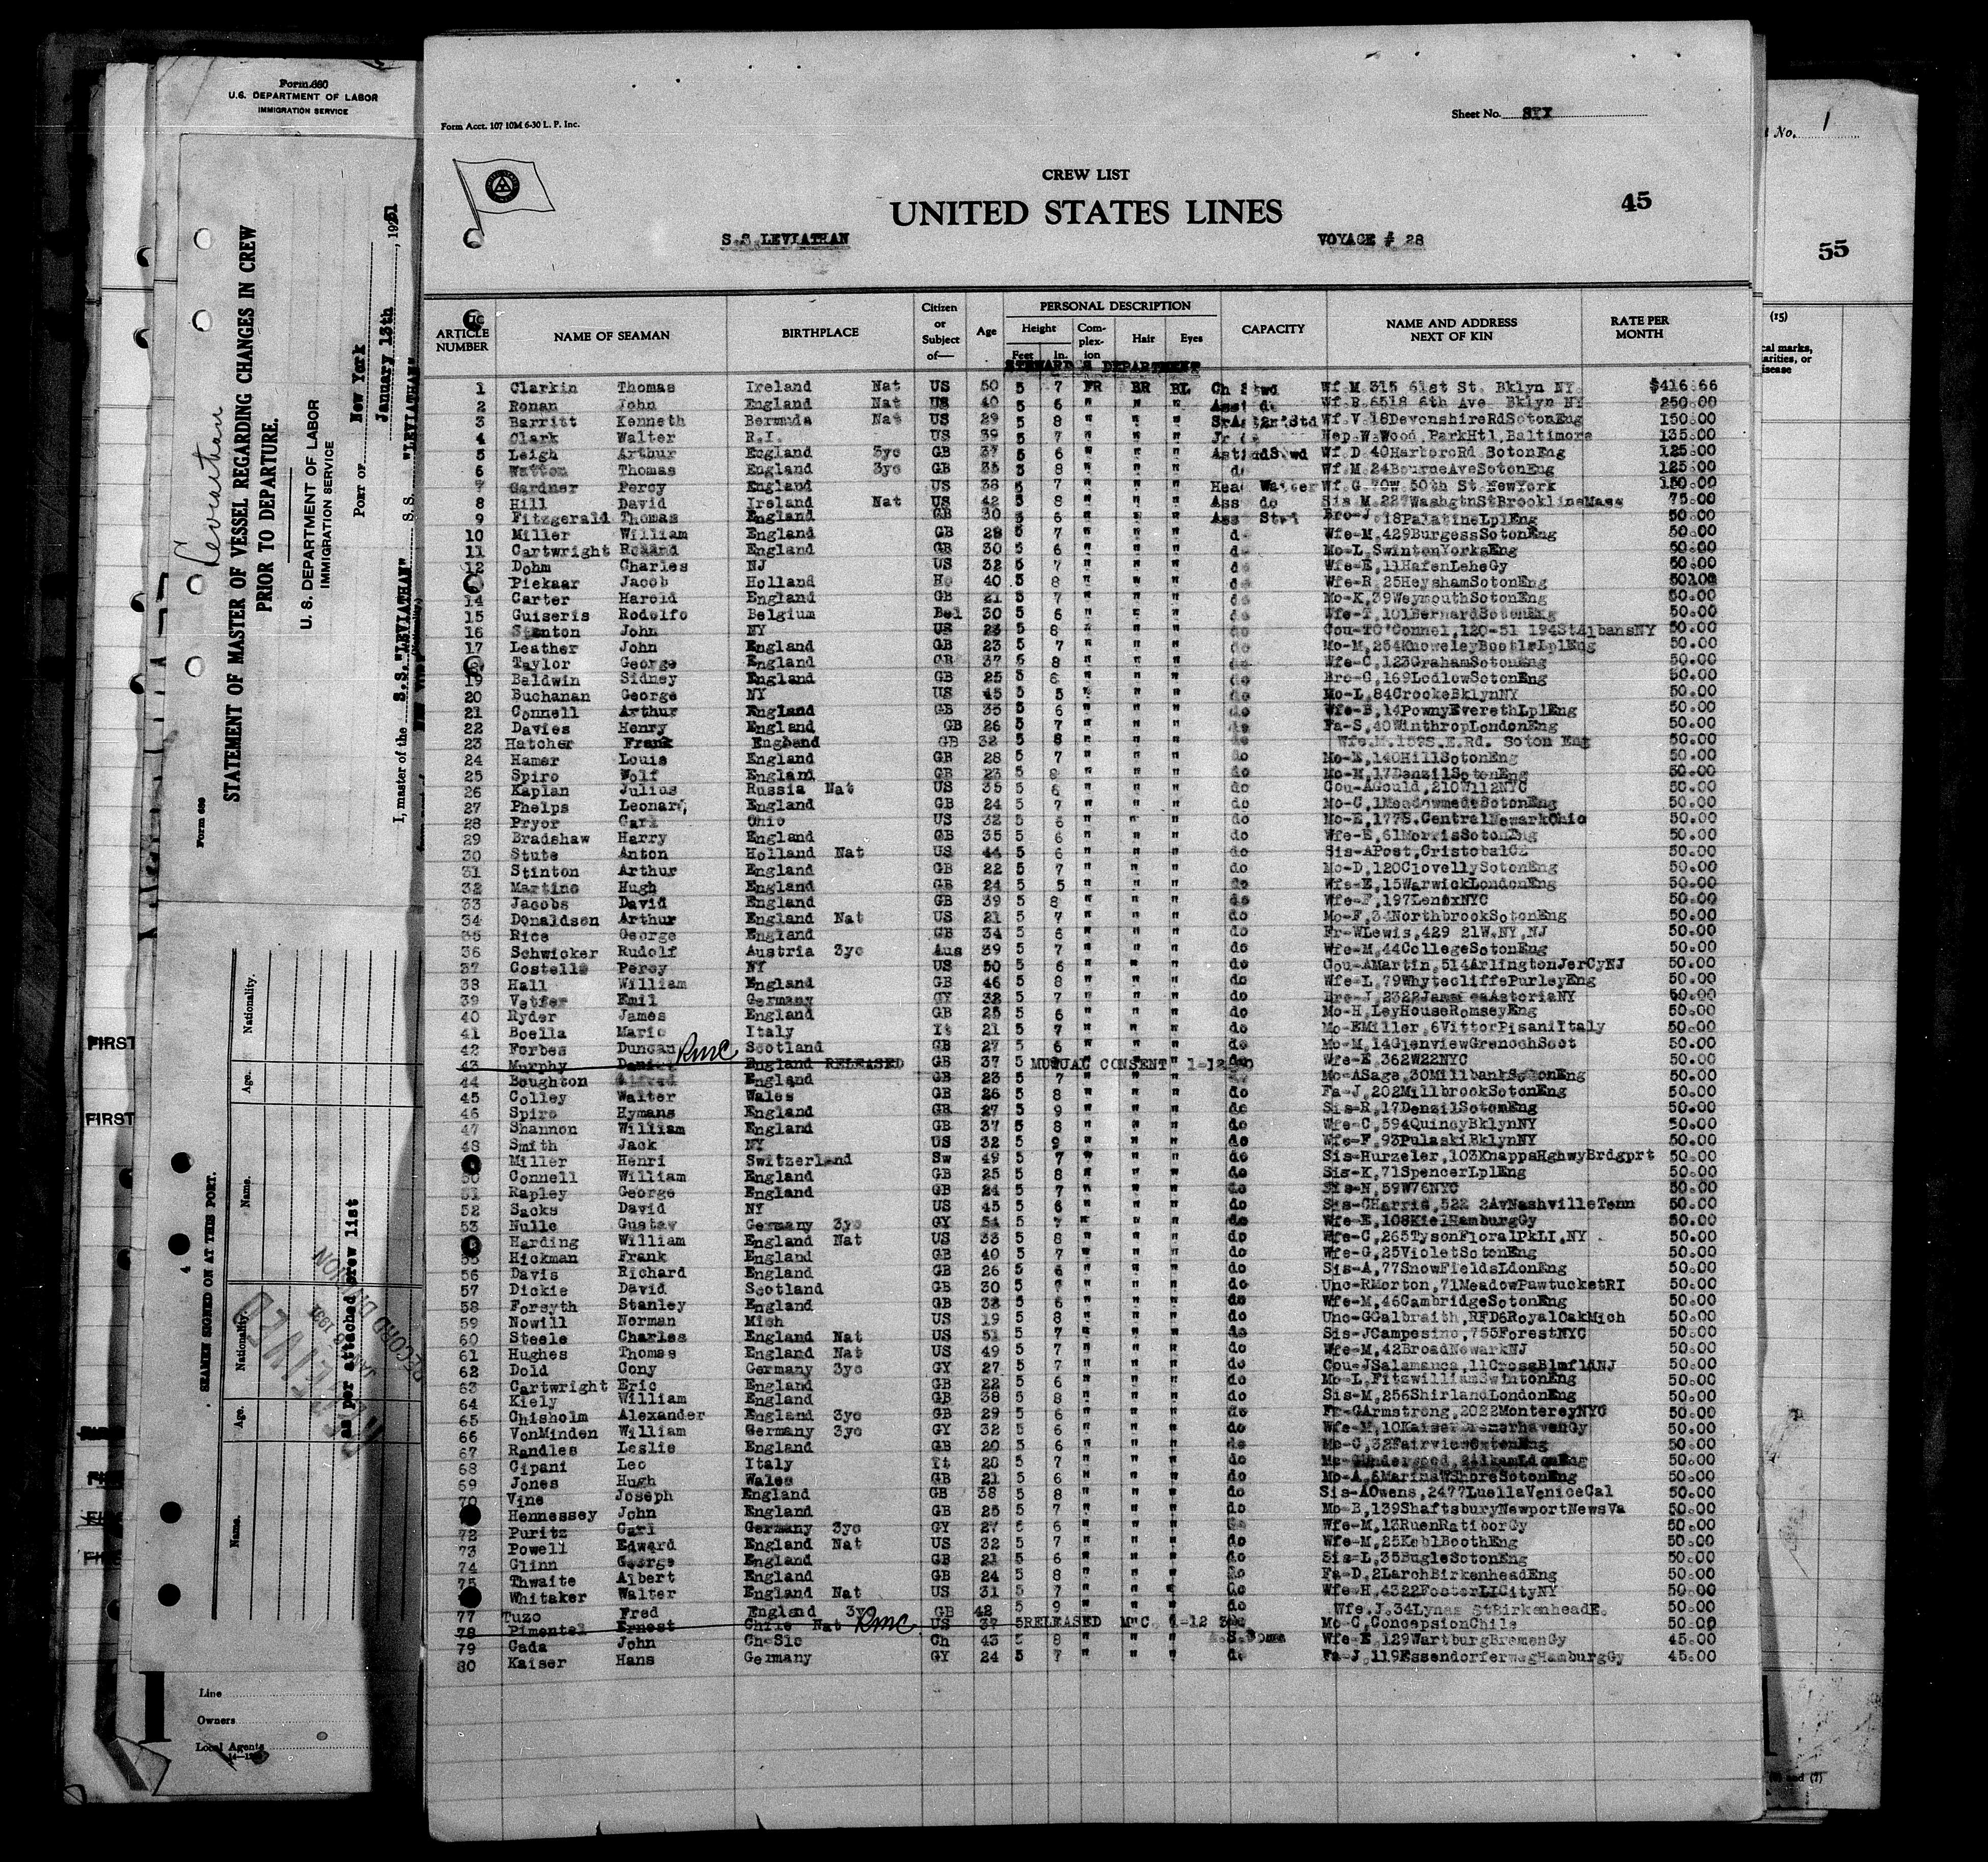 Form 680
U.S. DEPARTMENT OF LABOR
IMMIGRATION SERVICE
Leviathan
STATEMENT OF MASTER OF VESSEL REGARDING CHANGES IN CREW
PRIOR TO DEPARTURE.
U. S. DEPARTMENT OF LABOR
IMMIGRATION SERVICE
Port of New York
January 13th, 1931
I, master of the S.S. "LEVIATHAN" S. S. "LEVIATHAN"
Form 680
SEAMEN SIGNED ON AT THIS PORT.
Name. Age. Nationality. Name. Age. Nationality.
as per attached crew list
RECEIVED
RECORD DIVISION
4
Line
Owners
Local Agents
FIRST
FIRST
Form Acct. 107 10M 6-30 L. P. Inc.
Sheet No. SIX
CREW LIST
UNITED STATES LINES
45
S.S. LEVIATHAN VOYAGE # 28
ARTICLE NUMBER NAME OF SEAMAN BIRTHPLACE Citizen or Subject of— Age PERSONAL DESCRIPTION Height Feet In. Complexion Hair Eyes CAPACITY NAME AND ADDRESS NEXT OF KIN RATE PER MONTH
STEWARD'S DEPARTMENT
1 Clarkin Thomas Ireland Nat US 50 5 7 FR BR BL Ch Stwd Wf M 315 61st St. Bklyn NY $416.66
2 Ronan John England Nat US 40 5 6 " " " Asst do Wf R 6518 6th Ave Bklyn NY 250.00
3 Barritt Kenneth Bermuda Nat US 29 5 8 " " " Wf V 18DevonshireRdSotonEng 150.00
4 Clark Walter R.I. US 39 5 7 " " " Jr do Nep W Wood ParkHtl Baltimore 135.00
5 Leigh Arthur England 3yc GB 37 5 6 " " " Wf D 40HarboroRd SotonEng 125.00
6 Watton Thomas England 3yc GB 35 5 8 " " " do Wf M 24BourneAveSotonEng 125.00
7 Gardner Percy England US 38 5 7 " " " Head Waiter Wf G 70W 50th St NewYork 150.00
8 Hill David Ireland Nat US 42 5 8 " " " Ass do Sis M 227WashgtnStBrooklineMass 75.00
9 Fitzgerald Thomas England GB 30 5 6 " " " Ass Stwd Bro-J 18PalatineLplEng 50.00
10 Miller William England GB 28 5 7 " " " do Wfe-M,429BurgessSotonEng 50.00
11 Cartwright Roland England GB 30 5 6 " " " do Mo-L SwintonYorksEng 50.00
12 Dohm Charles NJ US 32 5 7 " " " do Wfe-E,11HafenLeheGy 50.00
Piekaar Jacob Holland Ho 40 5 8 " " " do Wfe-R 25HeyshamSotonEng
14 Carter Harold England GB 21 5 7 " " " do Mo-K,39WeymouthSotonEng 50.00
15 Guiseris Rodolfo Belgium Bel 30 5 6 " " " do Wfe-T,101BernardSotonEng 50.00
16 Stanton John NY US 23 5 8 " " " do Cou-TO'Connel,120-51 194StAlbansNY 50.00
17 Leather John England GB 23 5 7 " " " do Mo-M,254KnowsleyBootleLplEng 50.00
Taylor George England GB 37 5 8 " " " do Wfe-C,123GrahamSotonEng 50.00
19 Baldwin Sidney England GB 25 5 6 " " " do Bro-C,169LudlowSotonEng 50.00
20 Buchanan George NY US 45 5 5 " " " do Mo-L,84CrookeBklynNY 50.00
21 Connell Arthur England GB 35 5 6 " " " do Wfe-B,14PownyEverethLplEng 50.00
22 Davies Henry England GB 26 5 7 " " " do Fa-S,40WinthropLondonEng 50.00
23 Hatcher Frank England GB 32 5 8 " " " do Wfe.M.159S.E.Rd. Soton Eng 50.00
24 Hamer Louis England GB 28 5 7 " " " do Mo-E,140HillSotonEng 50.00
25 Spiro Wolf England GB 23 5 8 " " " do Mo-H,17DenzilSotonEng 50.00
26 Kaplan Julius Russia Nat US 35 5 6 " " " do Cou-AGould,210W112NYC 50.00
27 Phelps Leonard, England GB 24 5 7 " " " do Mo-C,1MeadowmedeSotonEng 50.00
28 Pryor Carl Ohio US 32 5 6 " " " do Mo-E,177S.CentralNewarkOhio 50.00
29 Bradshaw Harry England GB 35 5 6 " " " do Wfe-E,61MorrisSotonEng 50.00
30 Stute Anton Holland Nat US 44 5 6 " " " do Sis-APost,CristobalCZ 50.00
31 Stinton Arthur England GB 22 5 7 " " " do Mo-D,120ClovellySotonEng 50.00
32 Martino Hugh England GB 24 5 5 " " " do Wfe-E,15WarwickLondonEng 50.00
33 Jacobs David England GB 39 5 8 " " " do Wfe-F,197LenoxNYC 50.00
34 Donaldsen Arthur England Nat US 21 5 7 " " " do Mo-F,34NorthbrookSotonEng 50.00
35 Rice George England GB 34 5 6 " " " do Fr-WLewis,429 21W.NY,NJ 50.00
36 Schwicker Rudolf Austria 3yc Aus 39 5 7 " " " do Wfe-M,44CollegeSotonEng 50.00
37 Costello Percy NY US 50 5 6 " " " do Cou-AMartin,514ArlingtonJerCyNJ 50.00
38 Hall William England GB 46 5 8 " " " do Wfe-L,79WhytecliffePurleyEng 50.00
39 Vetter Emil Germany GY 32 5 7 " " " do Bro-J,2322JamaicaAstoriaNY 50.00
40 Ryder James England GB 25 5 6 " " " do Mo-H,LeyHouseRomseyEng 50.00
41 Boella Mario Italy It 21 5 7 " " " do Mo-EMiller,6VittorPisaniItaly 50.00
42 Forbes Duncan Scotland GB 27 5 6 " " " do Mo-M,14GlenviewGrenochScot 50.00
43 Murphy Daniel RMC England RELEASED GB 37 5 MUTUAL CONSENT 1-12-30 Wfe-E,362W22NYC 50.00
44 Boughton Alfred England GB 23 5 7 " " " do Mo-ASage,30MillbankSotonEng 50.00
45 Colley Walter Wales GB 26 5 8 " " " do Fa-J,202MillbrookSotonEng 50.00
46 Spiro Hymans England GB 27 5 9 " " " do Sis-R,17DenzilSotonEng 50.00
47 Shannon William England GB 37 5 8 " " " do Wfe-C,594QuincyBklynNY 50.00
48 Smith Jack NY US 32 5 9 " " " do Wfe-F,93PulaskiBklynNY 50.00
Miller Henri Switzerland Sw 49 5 7 " " " do Sis-Hurzeler,103KnappsHghwyBrdgprt 50.00
50 Connell William England GB 25 5 8 " " " do Sis-K,71SpencerLplEng 50.00
51 Rapley George England GB 24 5 7 " " " do Sis-N,59W76NYC 50.00
52 Sacks David NY US 45 5 6 " " " do Sis-CHarris,522 2AvNashvilleTenn 50.00
53 Nulle Gustav Germany 3yc GY 54 5 7 " " " do Wfe-E,108KielHamburgGy 50.00
Harding William England Nat US 33 5 8 " " " do Wfe-C,265TysonFloralPkLI,NY 50.00
55 Hickman Frank England GB 40 5 7 " " " do Wfe-G,25VioletSotonEng 50.00
56 Davis Richard England GB 26 5 6 " " " do Sis-A,77SnowFieldsLdonEng 50.00
57 Dickie David Scotland GB 30 5 6 " " " do Unc-RMorton,71MeadowPawtucketRI 50.00
58 Forsyth Stanley England GB 32 5 6 " " " do Wfe-M,46CambridgeSotonEng 50.00
59 Nowill Norman Mich US 19 5 8 " " " do Unc-GGalbraith,RFD6RoyalOakMich 50.00
60 Steele Charles England Nat US 51 5 7 " " " do Sis-JCampesino,755ForestNYC 50.00
61 Hughes Thomas England Nat US 49 5 7 " " " do Wfe-M,42BroadNewarkNJ 50.00
62 Dold Cony Germany 3yc GY 27 5 7 " " " do Cou-JSalamanca,11CrossBlmfldNJ 50.00
63 Cartwright Eric England GB 22 5 6 " " " do Mo-L,FitzwilliamSwintonEng 50.00
64 Kiely William England GB 38 5 8 " " " do Sis-M,256ShirlandLondonEng 50.00
65 Chisholm Alexander England 3yc GB 29 5 6 " " " do Fr-GArmstrong,2022MontereyNYC 50.00
66 VonMinden William Germany 3yc GY 32 5 6 " " " do Wfe-M,10KaiserBremerhavenGy 50.00
67 Randles Leslie England GB 20 5 6 " " " do Mo-C,32FairviewSotonEng 50.00
68 Cipani Leo Italy It 20 5 7 " " " do 50.00
69 Jones Hugh Wales GB 21 5 6 " " " do Mo-A,6MarinaWShoreSotonEng 50.00
70 Vine Joseph England GB 38 5 8 " " " do Sis-AOwens,2477LuellaVeniceCal 50.00
Hennessey John England GB 25 5 7 " " " do Mo-B,139ShaftsburyNewportNewsVa 50.00
72 Puritz Carl Germany 3yc GY 27 5 6 " " " do Wfe-M,13RuenRatiborGy 50.00
73 Powell Edward England Nat US 32 5 7 " " " do Wfe-M,25KeblBoothEng 50.00
74 Glinn George England GB 21 5 6 " " " do Sis-L,35BugleSotonEng 50.00
75 Thwaite Albert England GB 24 5 8 " " " do Fa-D,2LarchBirkenheadEng 50.00
Whitaker Walter England Nat US 31 5 7 " " " do Wfe-H,4322FosterLICityNY 50.00
77 Tuzo Fred England 3yc GB 42 5 9 " " " do Wfe.J.34Lynas StBirkenheadE. 50.00
78 Pimentel Ernest Chile Nat RMC US 37 5RELEASED M C 1-12 30 Mo-C,ConcepsionChile 50.00
79 Gada John Ch-Slo Ch 43 5 8 " " " Wfe-E,129WartburgBremenGy 45.00
80 Kaiser Hans Germany GY 24 5 7 " " " do Fa-J,119EssendorferwegHamburgGy 45.00
No. 1
55
(15)